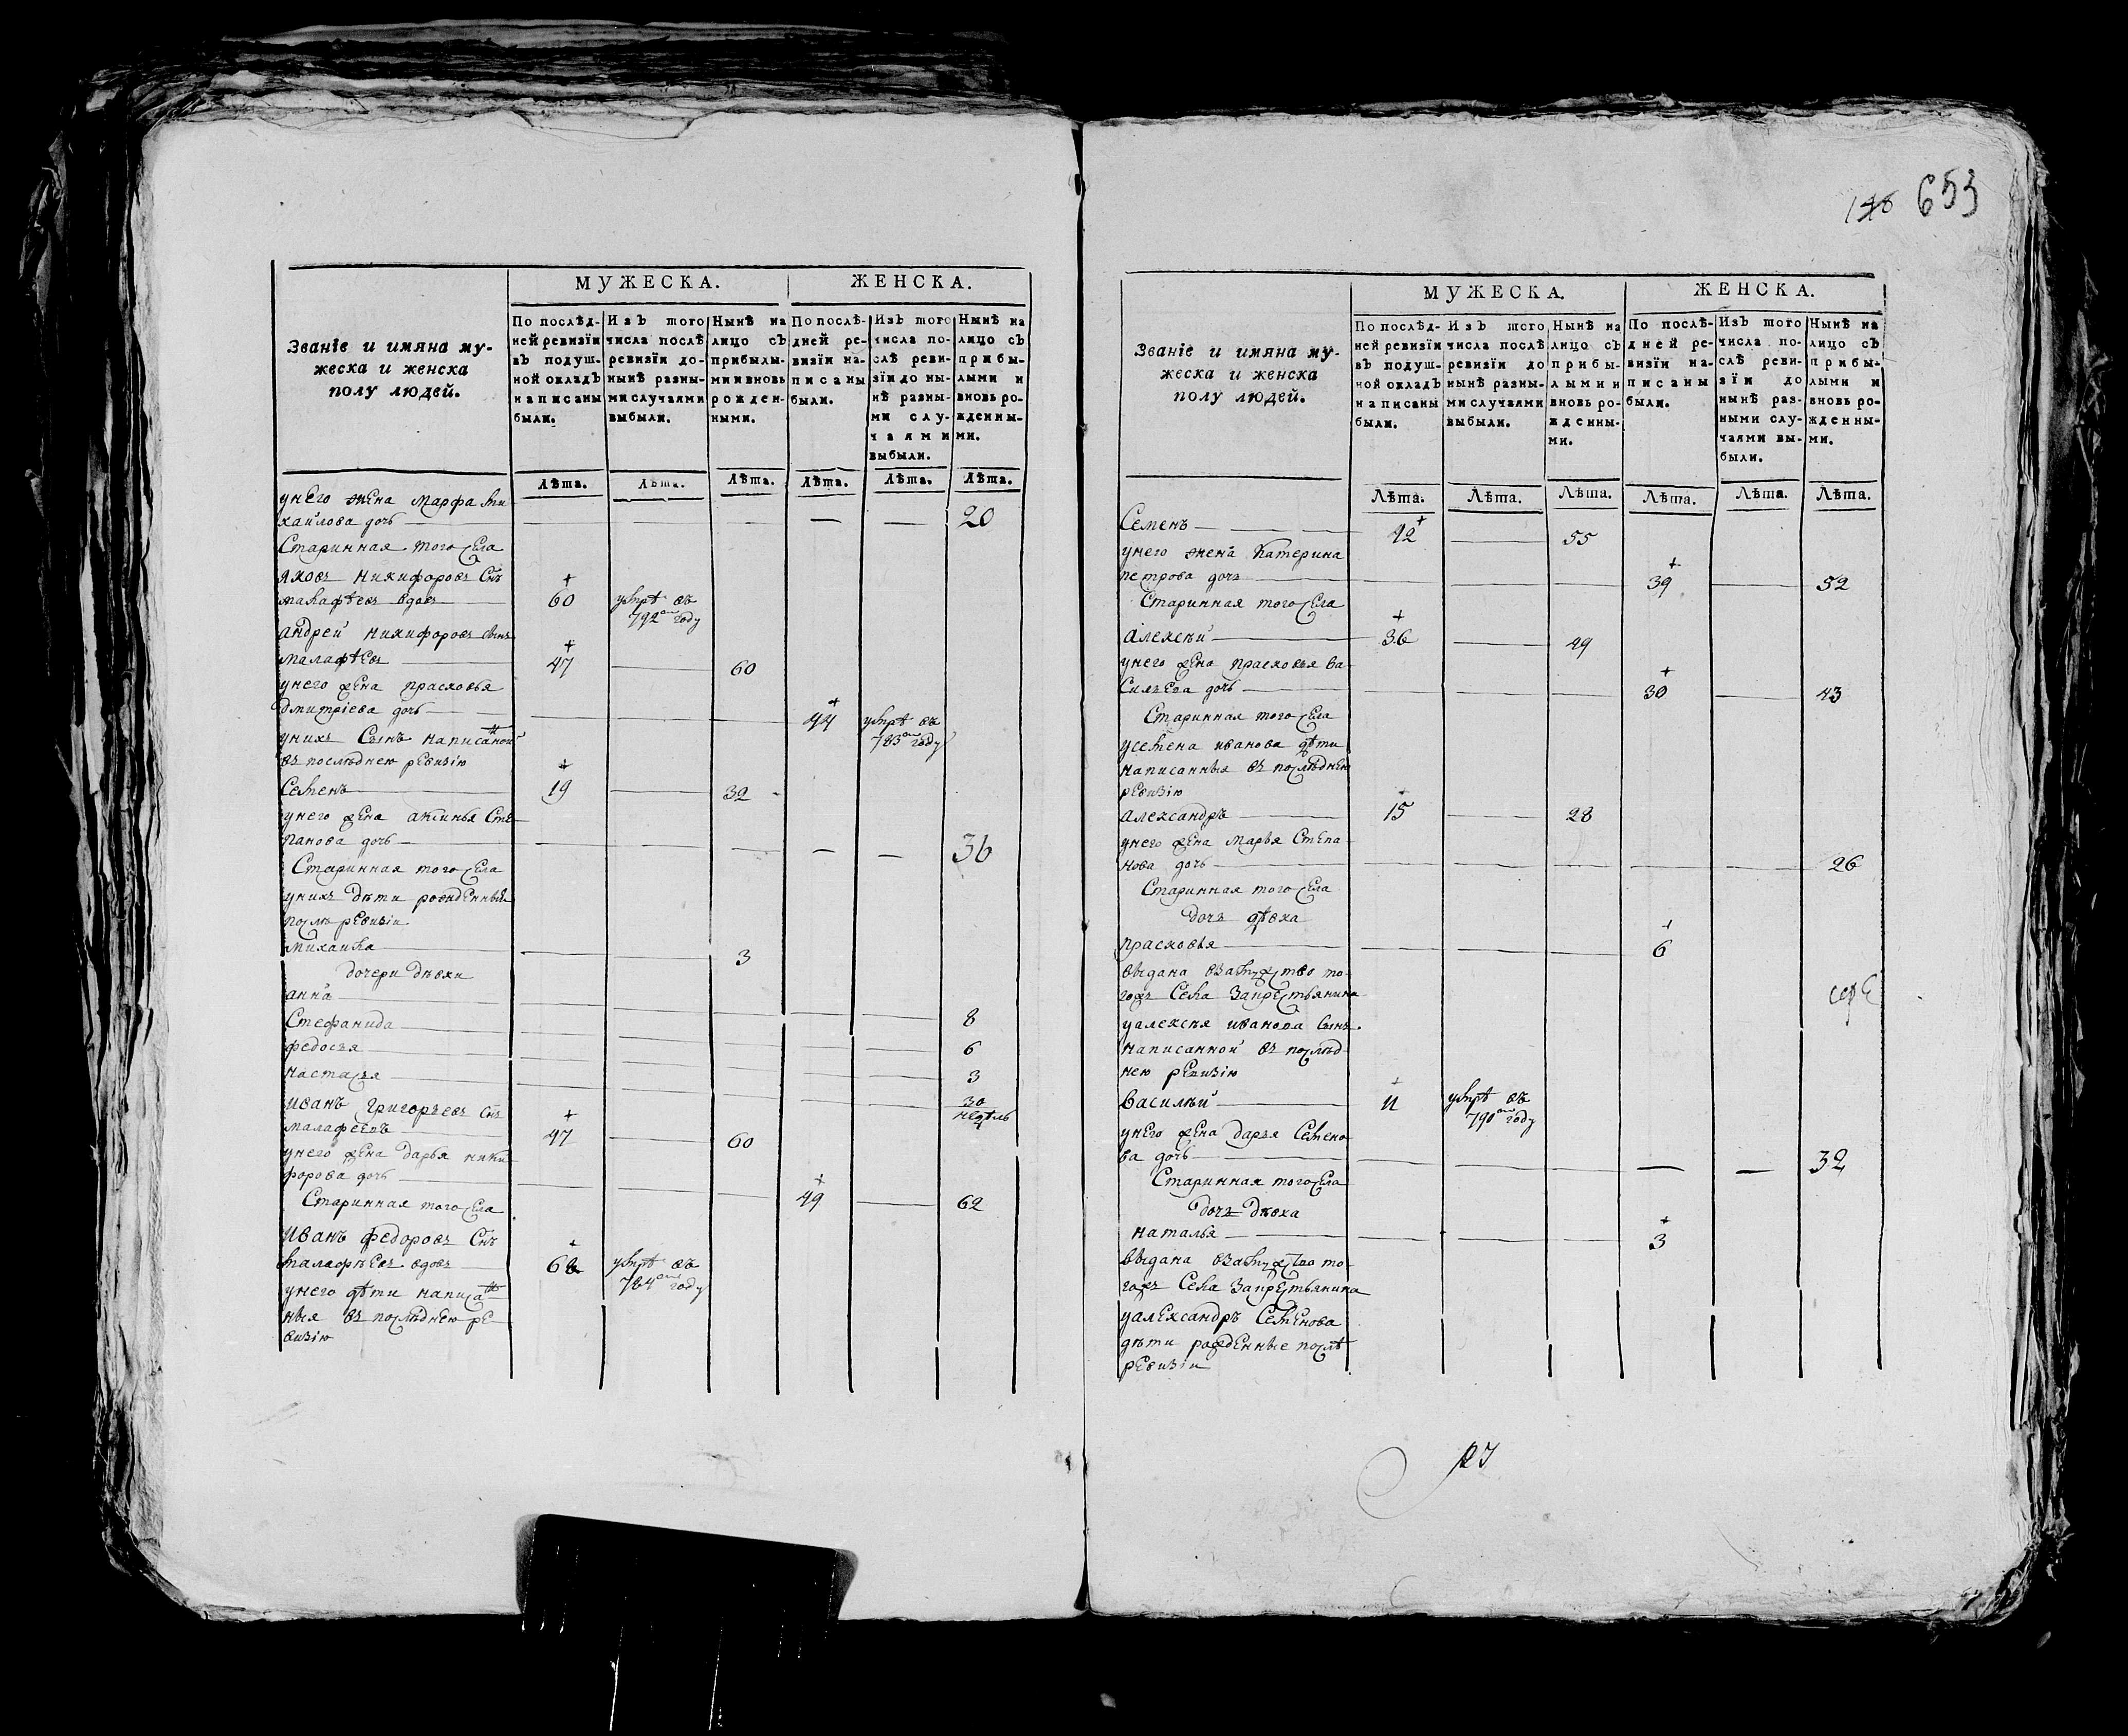 148 653
МУЖЕСКА. ЖЕНСКА.
Званїе и имяна му-
жеска и женска
полу людей.
По послѣд-
ней ревизїи
въ подуш-
ной окладъ
написаны
были.
Изъ того
числа послѣ
ревизїи до-
нынѣ разны-
ми случаями
выбыли.
Нынѣ на
лицо съ
прибылы-
ми и вновь
рожден-
ными.
По послѣ-
дней ре-
визїи на-
писаны
были.
Изъ того
числа по-
слѣ реви-
зїи до ны-
нѣ разны-
ми слу-
чаями
выбыли.
Нынѣ на
лицо съ
прибы-
лыми и
вновь ро-
жденны-
ми.
Лѣта. Лѣта. Лѣта. Лѣта. Лѣта. Лѣта.
унего жена марфа ми-
хайлова дочь — — — — — — 20
Старинная того села
яковъ никифоровъ Снъ
малафѣевъ вдовъ 60 умрѣ въ
792 году
андрей никифоровъ сынъ
малафѣевъ 47 — 60
унего жена прасковья
дмитрїева дочь — — — 44 умрѣ въ
783 году
унихъ Сынъ написаной
въ послѣднею ревизїю
Семенъ 19 — 32
унего жена аксинья Сте-
панова дочь — — — — — 36
Старинная того села
унихъ дѣти рожденныя
послѣ ревизїи
михаила — — 3
дочери дѣвки
анна — — — — — 8
Стефанида — — — — — 6
федосья — — — — — 3
настасья — — — — — 30
недѣль
иванъ григорьевъ Снъ
малафеевъ 47 — 60
унего жена дарья ники-
форова дочь — — — 49 — 62
Старинная того села
иванъ федоровъ Снъ
малафѣевъ вдовъ 62 умрѣ въ
784 году
унего дѣти написа-
ныя въ послѣднею ре-
визїю
МУЖЕСКА. ЖЕНСКА.
Званїе и имяна му-
жеска и женска
полу людей.
По послѣд-
ней ревизїи
въ подуш-
ной окладъ
написаны
были.
Изъ того
числа послѣ
ревизїи до
нынѣ разны-
ми случаями
выбыли.
Нынѣ на
лицо съ
прибы-
лыми и
вновь ро-
жденны-
ми.
По послѣ-
дней ре-
визїи на-
писаны
были.
Изъ того
числа по-
слѣ реви-
зїи до
нынѣ раз-
ными слу-
чаями вы-
были.
Нынѣ на
лицо съ
прибы-
лыми и
вновь ро-
жденны-
ми.
Лѣта. Лѣта. Лѣта. Лѣта. Лѣта. Лѣта.
Семенъ 42 — 55
унего жена Катерина
петрова дочь — — — 39 — 52
Старинная того села
алексѣй 36 — 49
унего жена прасковья ва-
сильева дочь — — — 30 — 43
Старинная того села
усемена иванова дѣти
написанныя въ послѣднею
ревизїю
александръ 15 — 28
унего жена марья Степа-
нова дочь — — — — — 26
Старинная того села
дочь дѣвка
прасковья — — — 6
выдана взамужство то-
гожъ Села Закрестьянина
уалексея иванова Сынъ
написанной въ послѣд-
нею ревизїю
василѣй 11 умрѣ въ
790 году
унего жена дарья Семено-
ва дочь — — — — — 32
Старинная того села
дочь дѣвка
наталья — — — 3
выдана взамужство то-
гожъ Села Закрестьянина
уалександръ Семенова
дѣти рожденные послѣ
ревизїи